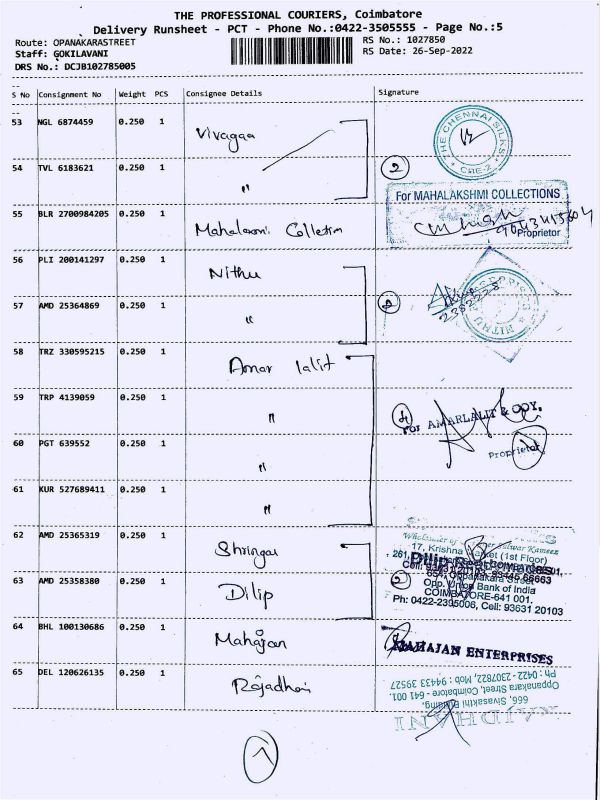 THE PROFESSIONAL COURIERS, Coimbatore
Delivery Runsheet - PCT - Phone No.:0422-3505555 - Page No.:5
Route: OPANAKARASTREET
RS No.: 1027850
Staff: GOKILAVANI
RS Date: 26-Sep-2022
DRS No.: DCJB102785005
S No Consignment No Weight PCS Consignee Details Signature
53 NGL 6874459 0.250 1 Vivagaa
THE CHENNAI SILKS
CBE-2
54 TVL 6183621 0.250 1 "
2
For MAHALAKSHMI COLLECTIONS
55 BLR 2700984205 0.250 1
Proprietor
56 PLI 200141297 0.250 1 Nithu
57 AMD 25364869 0.250 1 "
2
58 TRZ 330595215 0.250 1 Amar lalit
59 TRP 4139059 0.250 1 "
For AMARLALIT & COY.
60 PGT 639552 0.250 1 "
Proprietor
61 KUR 527689411 0.250 1 "
62 AMD 25365319 0.250 1 Shringar
17, Krishna Market (1st Floor)
63 AMD 25358380 0.250 1 Dilip
2
Opp. Union Bank of India
COIMBATORE-641 001.
Ph: 0422-2395006, Cell: 93631 20103
64 BHL 100130686 0.250 1 Mahajan
MAHAJAN ENTERPRISES
65 DEL 120626135 0.250 1 Rajadhani
Ph : 0422 - 2307822, Mob : 94433 39527
Oppanakara Street, Coimbatore - 641 001.
666, Sivasakthi Building,